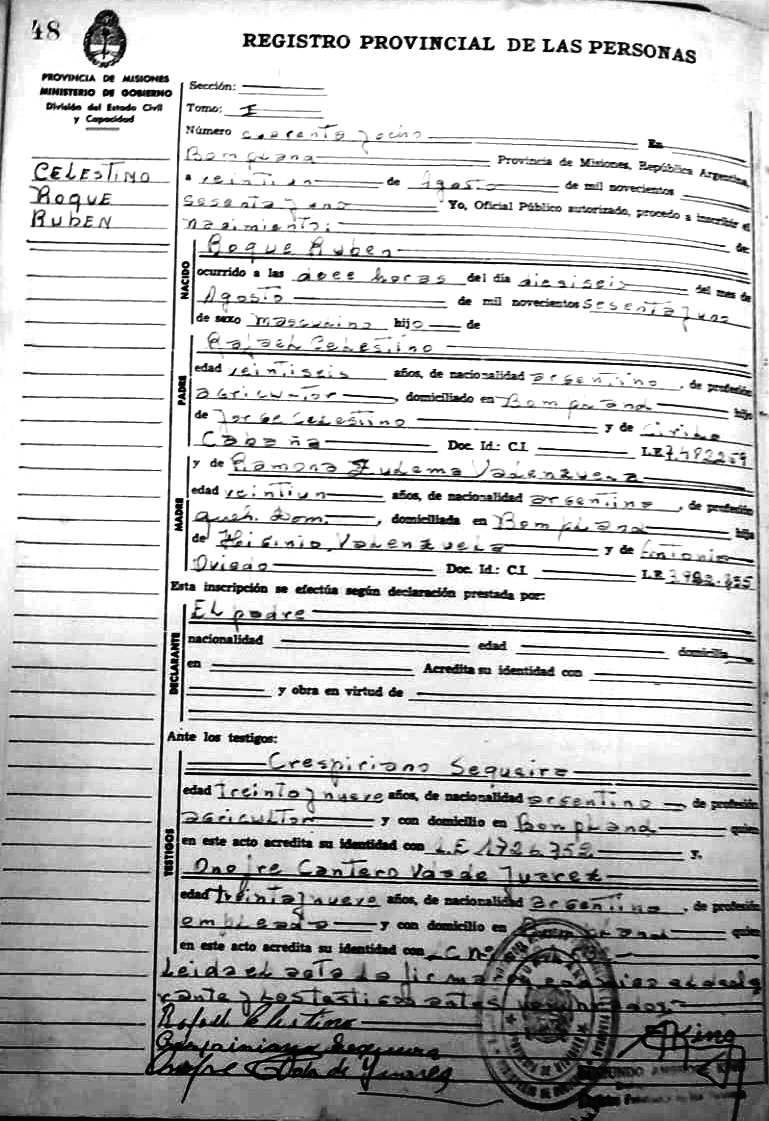 48
REGISTRO PROVINCIAL DE LAS PERSONAS
PROVINCIA DE MISIONES
MINISTERIO DE GOBIERNO
División del Estado Civil
y Capacidad
CELESTINO
ROQUE
RUBEN
Sección:
Tomo: I
Número cuarenta y ocho En
Bompland Provincia de Misiones, República Argentina,
a veintiun de Agosto de mil novecientos
sesenta y uno Yo, Oficial Público autorizado, procedo a inscribir el
nacimiento: de:
NACIDO
Roque Ruben
ocurrido a las doce horas del día dieciseis del mes de
Agosto de mil novecientos sesenta y uno
de sexo masculino hijo de
PADRE
Rafael Celestino
edad veintiseis años, de nacionalidad argentino, de profesión
agricultor, domiciliado en Bompland hijo
de Jorge Celestino y de
Cabaña Doc. Id.: C.I. L.E 7.482259
MADRE
y de Ramona Zulema Valenzuela
edad veintiun años, de nacionalidad argentina, de profesión
queh. Dom., domiciliada en Bompland hija
de Higinio Valenzuela y de Antonia
Oviedo Doc. Id.: C.I. L.E
Esta inscripción se efectúa según declaración prestada por:
DECLARANTE
El padre
nacionalidad edad domicilia
en Acredita su identidad con
y obra en virtud de
Ante los testigos:
TESTIGOS
Crespiriano Sequeira
edad treinta y nueve años, de nacionalidad argentino de profesión
agricultor y con domicilio en Bonpland quien
en este acto acredita su identidad con L.E 1726.752 y,
Onofre Cantero Valde Juarez
edad treinta y nueve años, de nacionalidad argentino, de profesión
empleado y con domicilio en Bompland quien
en este acto acredita su identidad con
Leida el acta la firma el
y los testigos antes
Rafael Celestino
Sequeira
Onofre Valde Juarez
King